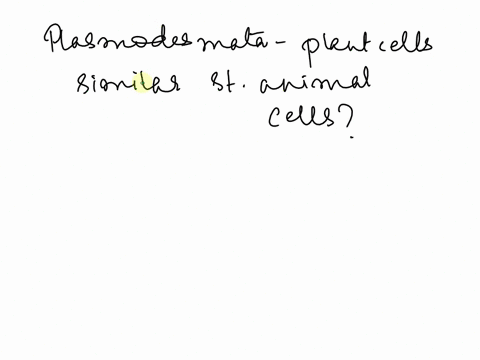 Plasmodesmata - plant cells
similar st. animal
cells?